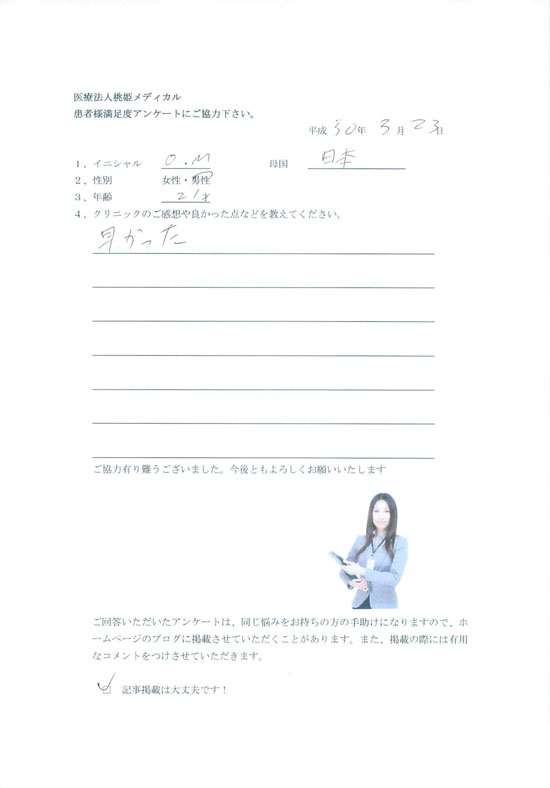 医療法人桃姫メディカル
患者様満足度アンケートにご協力下さい。
平成 30年 3月 23日
1、イニシャル O.M 母国 日本
2、性別 女性・男性
3、年齢 21才
4、クリニックのご感想や良かった点などを教えてください。
早かった
ご協力有り難うございました。今後ともよろしくお願いいたします
ご回答いただいたアンケートは、同じ悩みをお持ちの方の手助けになりますので、ホ
ームページのブログに掲載させていただくことがあります。また、掲載の際には有用
なコメントをつけさせていただきます。
記事掲載は大丈夫です！